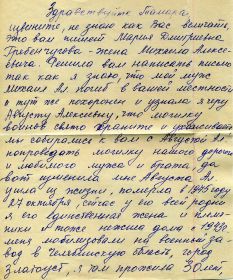 Здравствуйте Тамара
извините, не знаю как Вас величать,
это вам пишет Мария Дмитриевна
Гребенщикова - жена Михаила Алексе-
евича. Решила вам написать письмо
так как я знаю, что мой муж
Михаил Ал погиб в вашей местности
и тут же похоронен и узнала я през
Августу Алексеевну, что могилку
воинов свято храните и ухаживаете
мы собирались к вам с Августой Ал
попроведать могилку нашего дорого
и любимого мужа и брата, да
вот изменила мне Августа Ал
ушла из жизни, померла в 1975 году
27 октября сейчас у его всей родни
я его единственная жена и племян-
ники и тоже нижние дела с 1942
меня мобилизовали на военный за-
вод в Челябинскую область, город
Златоуст, я там прожила 30 лет